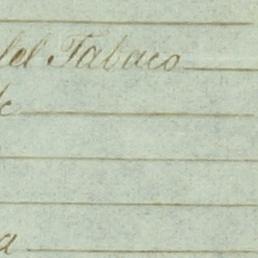 del Tabaco
a